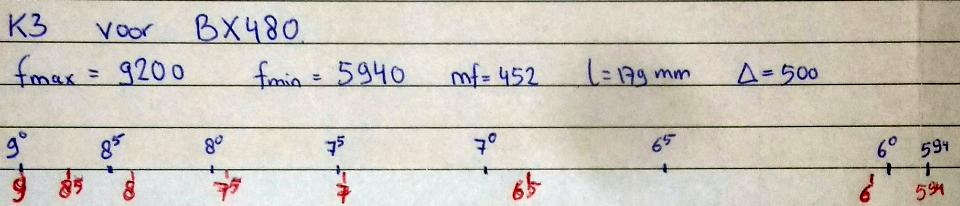 K3 voor BX480
fmax = 9200 fmin = 5940 mf = 452 l = 179 mm Δ = 500
9⁰ 8⁵ 8⁰ 7⁵ 7⁰ 6⁵ 6⁰ 594
9 8⁵ 8 7⁵ 7 6⁵ 6 594